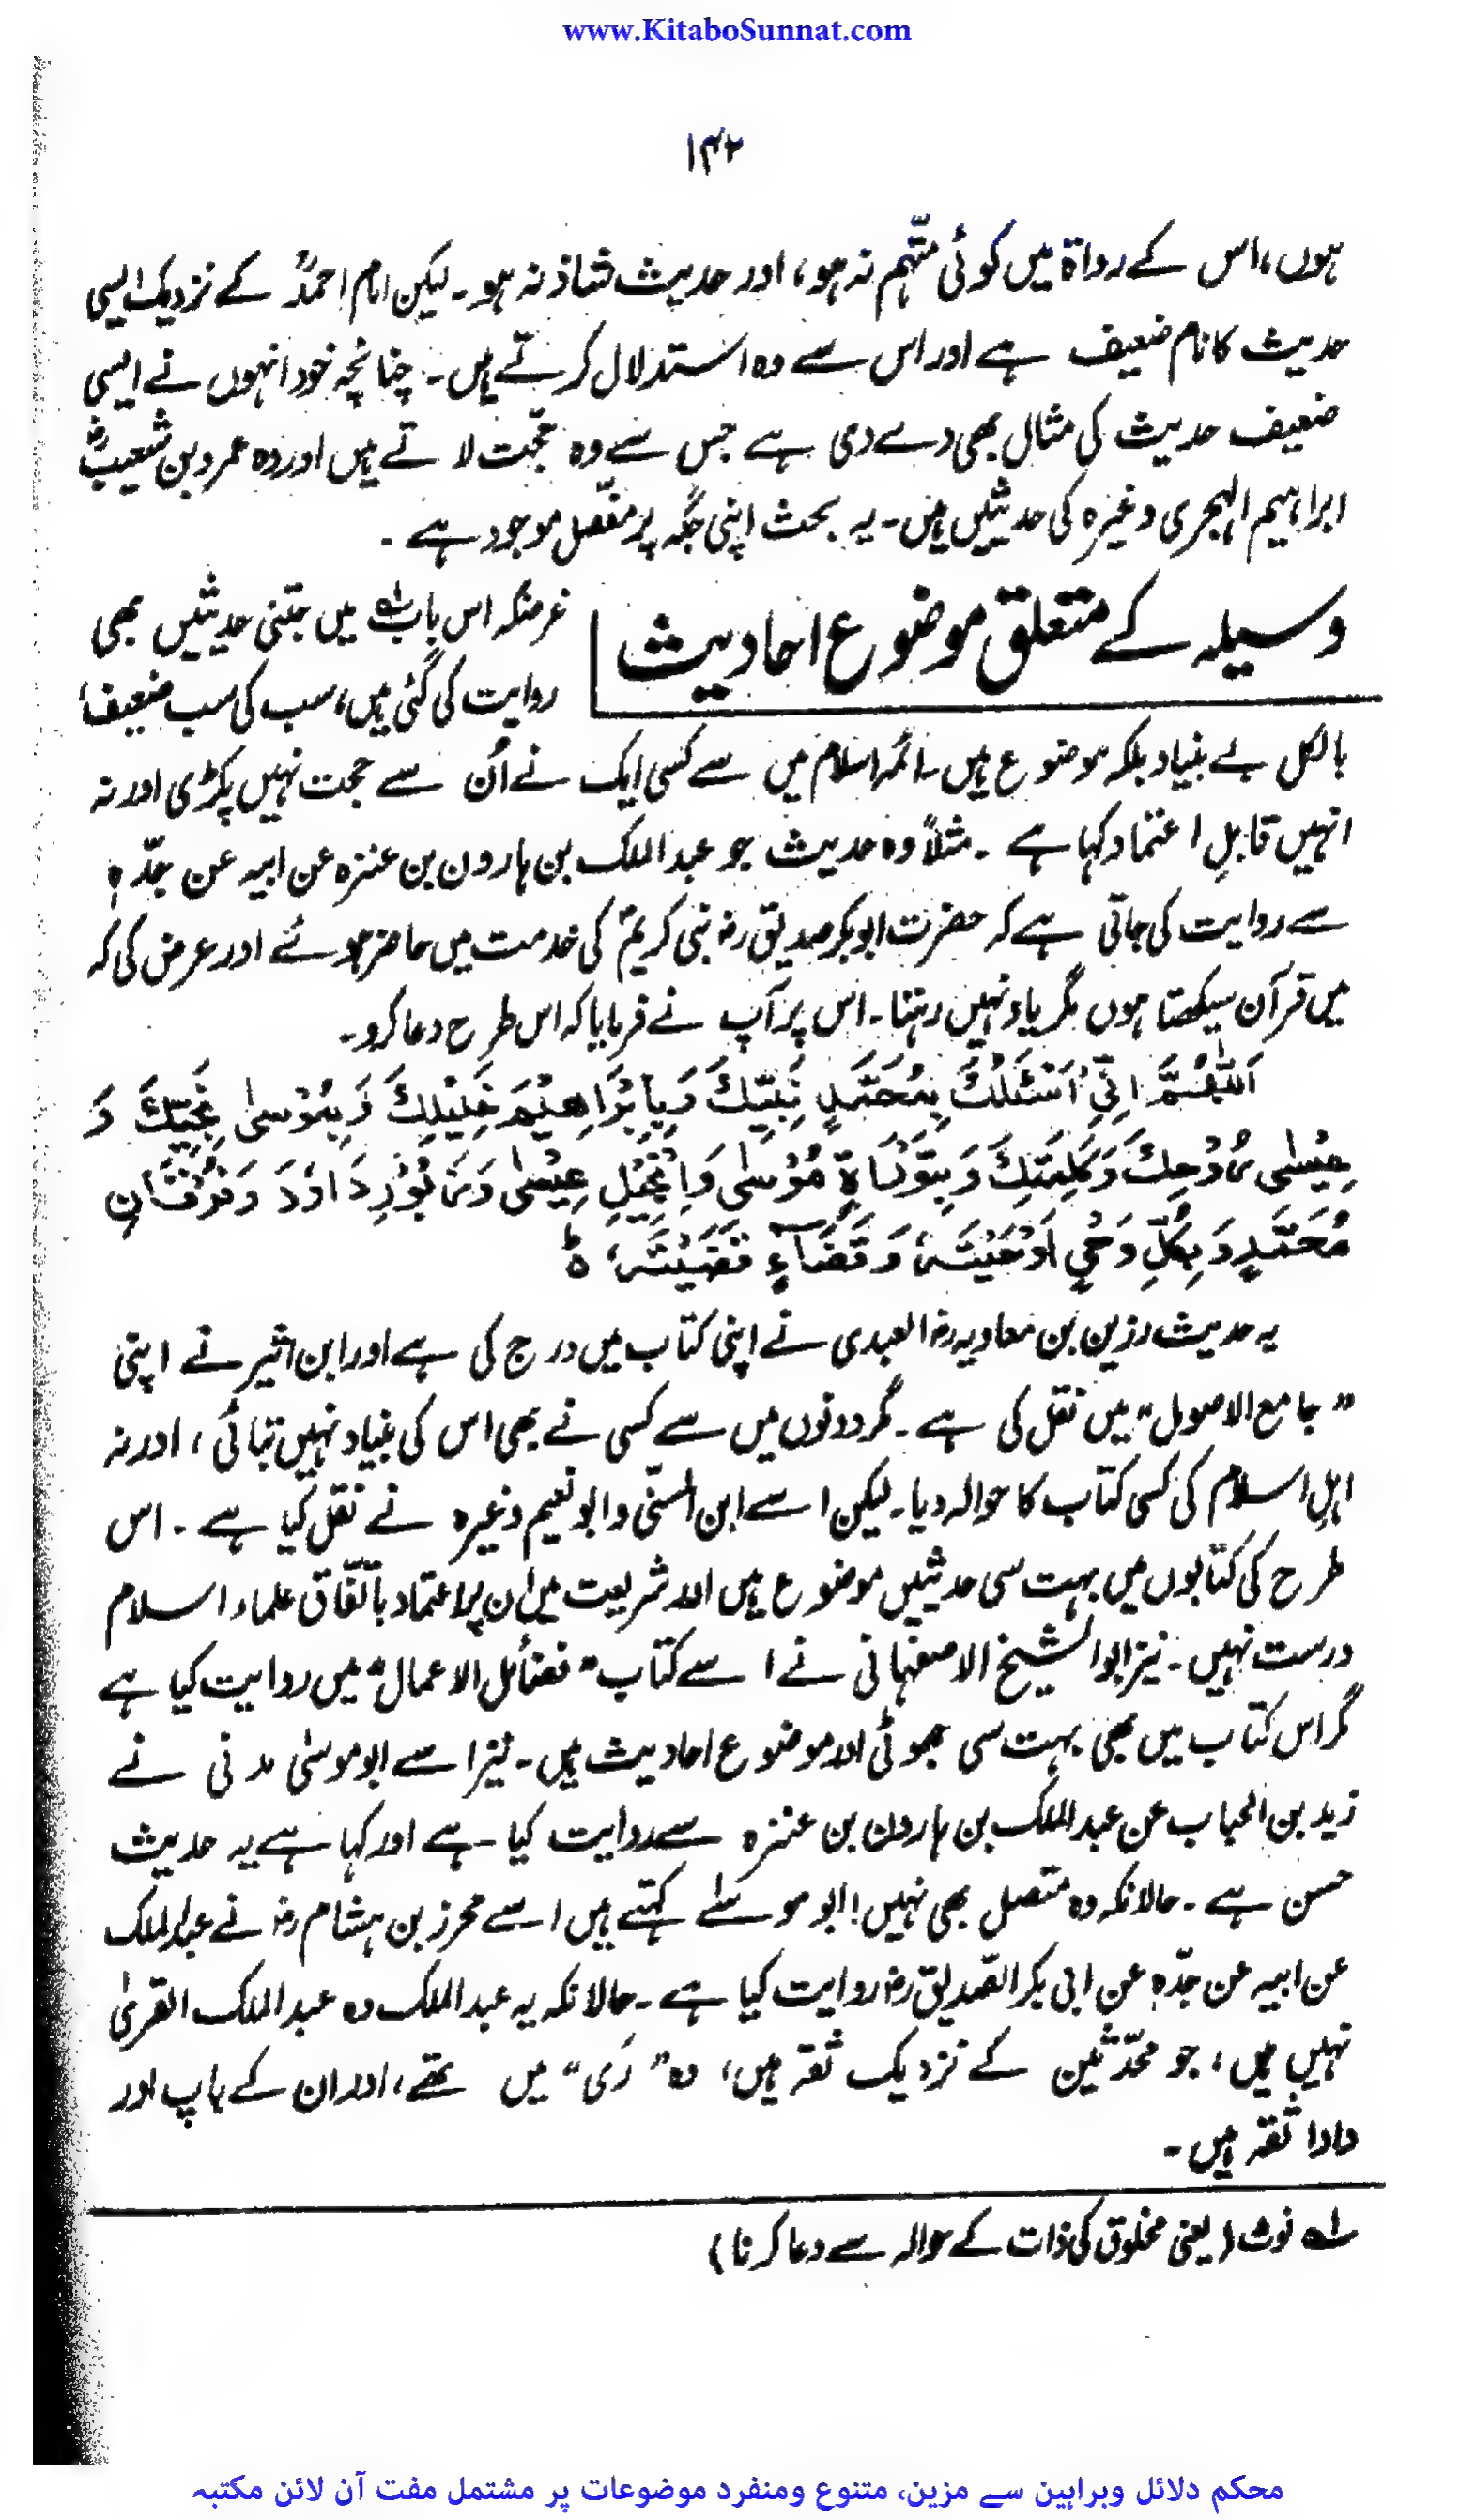 www.KitaboSunnat.com
۱۴۲
ہوں، اس کے رواۃ میں کوئی متّہم نہ ہو، اور حدیث شاذ نہ ہو۔ لیکن امام احمدؒ کے نزدیک ایسی
حدیث کا نام ضعیف ہے اور اس سے وہ استدلال کرتے ہیں۔ چنانچہ خود انہوں نے ایسی
ضعیف حدیث کی مثال بھی دے دی ہے جس سے وہ حجّت لاتے ہیں اور وہ عمرو بن شعیبؒ
ابراہیم الہجری وغیرہ کی حدیثیں ہیں۔ یہ بحث اپنی جگہ پر مفصّل موجود ہے۔
وسیلہ کے متعلق موضوع احادیث
غرضکہ اس باب؂۱ میں جتنی حدیثیں بھی
روایت کی گئی ہیں، سب کی سب ضعیف،
بالکل بے بنیاد بلکہ موضوع ہیں۔ ائمہ اسلام میں سے کسی ایک نے اُن سے حجت نہیں پکڑی اور نہ
انہیں قابلِ اعتماد کہا ہے۔ مثلاً وہ حدیث جو عبد الملک بن ہارون بن عنزہ عن ابیہ عن جدّہٖ
سے روایت کی جاتی ہے کہ حضرت ابوبکر صدیق رضؓ نبی کریمؐ کی خدمت میں حاضر ہوئے اور عرض کی کہ
میں قرآن سیکھتا ہوں مگر یاد نہیں رہتا۔ اس پر آپ نے فرمایا کہ اس طرح دعا کرو۔
اَللّٰهُمَّ اِنِّیْ اَسْئَلُكَ بِمُحَمَّدٍ نَبِیِّكَ وَبِاِبْرَاهِیْمَ خَلِیْلِكَ وَبِمُوْسٰی نَجِیِّكَ وَ
عِیْسٰی رُوْحِكَ وَكَلِمَتِكَ وَبِتَوْرَاةِ مُوْسٰی وَاِنْجِیْلِ عِیْسٰی وَزَبُوْرِ دَاوٗدَ وَفُرْقَانِ
مُحَمَّدٍ وَبِكُلِّ وَحْیٍ اَوْحَیْتَهٗ وَقَضَآءٍ قَضَیْتَهٗ ہ
یہ حدیث رزین بن معاویہ رضؓ العبدی نے اپنی کتاب میں درج کی ہے اور ابن اثیر نے اپنی
"جامع الاصول" میں نقل کی ہے۔ مگر دونوں میں سے کسی نے بھی اس کی بنیاد نہیں بتائی، اور نہ
اہلِ اسلام کی کسی کتاب کا حوالہ دیا۔ لیکن اسے ابن السنّی و ابو نعیم وغیرہ نے نقل کیا ہے۔ اس
طرح کی کتابوں میں بہت سی حدیثیں موضوع ہیں اور شریعت میں ان پر اعتماد باتّفاق علماء اسلام
درست نہیں۔ نیز ابو الشیخ الاصفہانی نے اسے کتاب "فضائل الاعمال" میں روایت کیا ہے
مگر اس کتاب میں بھی بہت سی جھوٹی اور موضوع احادیث ہیں۔ نیز اسے ابو موسیٰ مدنی نے
زید بن الحباب عن عبد الملک بن ہارون بن عنزہ سے روایت کیا ہے اور کہا ہے یہ حدیث
حسن ہے۔ حالانکہ وہ متصل بھی نہیں! ابو موسٰے کہتے ہیں اسے محرز بن ہشام رضؓ نے عبد الملک
عن ابیہ عن جدّہٖ عن ابی بکر الصّدیق رضؓ روایت کیا ہے۔ حالانکہ یہ عبد الملک وہ عبد الملک القریٰ
نہیں ہیں، جو محدّثین کے نزدیک ثقہ ہیں، وہ "رَی" میں تھے، اور ان کے باپ اور
دادا ثقہ ہیں۔
؂۱ نوٹ (یعنی مخلوق کی ذات کے حوالہ سے دعا کرنا)
محکم دلائل وبراہین سے مزین، متنوع ومنفرد موضوعات پر مشتمل مفت آن لائن مکتبہ